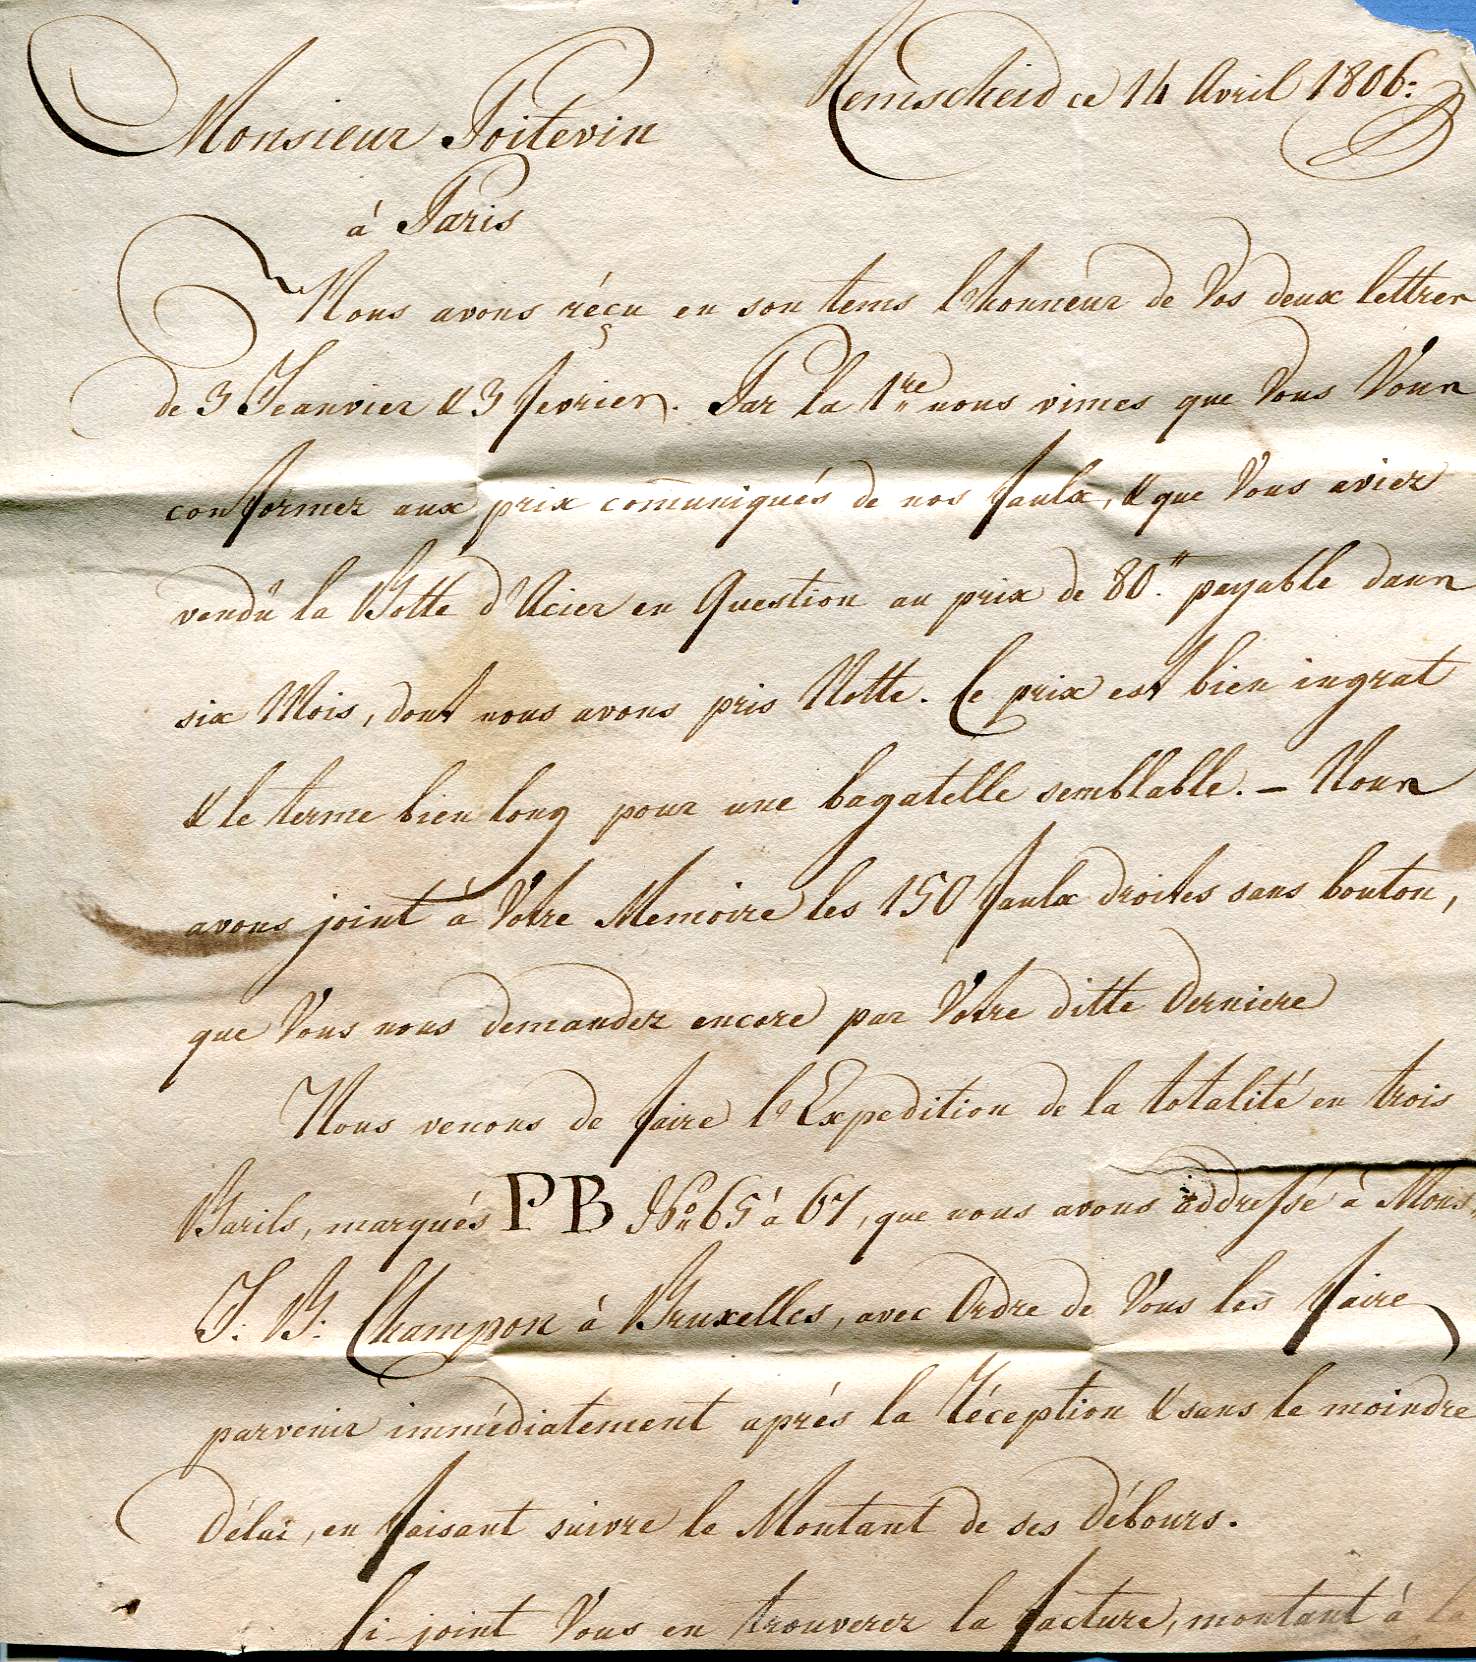 Remscheid ce 14 Avril 1806:
Monsieur Poitevin
á Paris
Nous avons réçu en son tems l'honneur de Vos deux lettres
de 3 Jeanvier & 3 fevrier. Par la 1re nous vimes que Vous Vous
conformez aux prix comuniqués de nos faulx, & que Vous aviez
vendû la Botte d'Acier en Question au prix de 80". payable dans
six Mois, dont nous avons pris Notte. Ce prix est bien ingrat
& le terme bien long pour une bagatelle semblable. – Nous
avons joint á Votre Memoire les 150 faulx droites sans bouton,
que Vous nous demandez encore par Votre ditte derniere
Nous venons de faire l'Expedition de la totalité en trois
Barils, marqués PB No 65 á 67, que nous avons addressé á Mons.
J. B. Champon á Bruxelles, avec Ordre de Vous les faire
parvenir immédiatement aprés la réception & sans le moindre
délai, en faisant suivre le Montant de ses débours.
Ci-joint Vous en trouverez la facture, montant á la